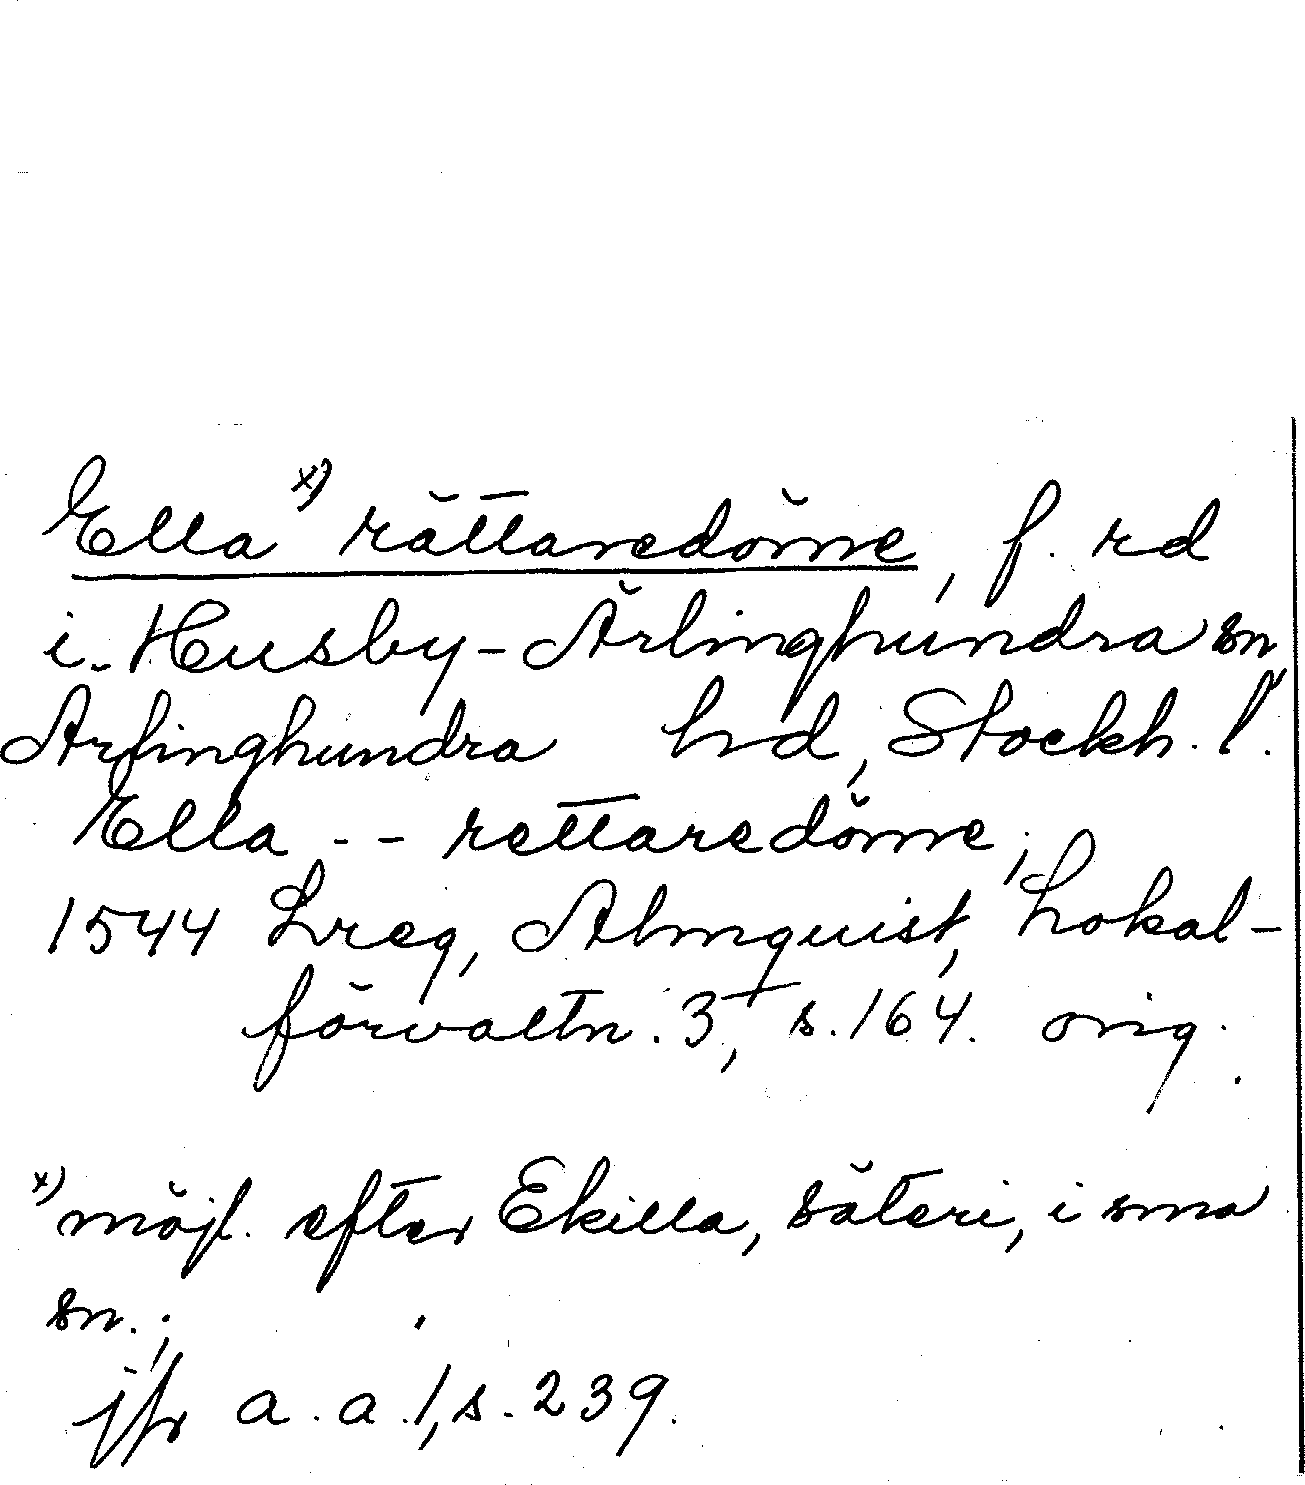 Ella x) rättaredöme, f. rd
i Husby-Ärlinghundra sn,
Ärlinghundra hd, Stockh. l.
Ella -- rettaredöme;
1544 Lreg, Almquist, Lokal-
förvaltn. 3, s. 164. orig.
x) möjl. efter Ekilla, säteri, i sma
sn.;
jfr a. a. 1, s. 239.